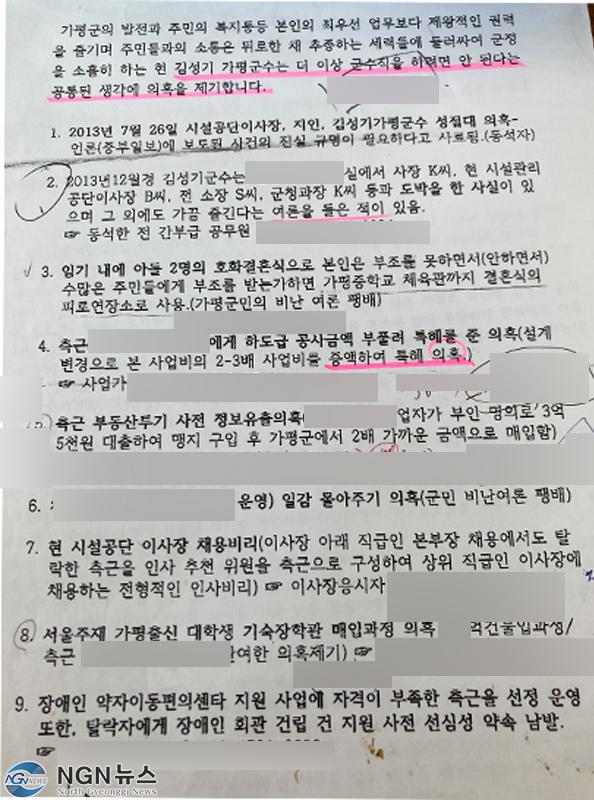 가평군의 발전과 주민의 복지등등 본인의 최우선 업무보다 제왕적인 권력
을 즐기며 주민들과의 소통은 뒤로한 채 추종하는 세력들에 둘러싸여 군정
을 소홀히 하는 현 김성기 가평군수는 더 이상 군수직을 하려면 안 된다는
공통된 생각에 의혹을 제기합니다.
1. 2013년 7월 26일 시설공단이사장, 지인, 김성기가평군수 성접대 의혹-
언론(중부일보)에 보도된 사건의 진실 규명이 필요하다고 사료됨.(동석자)
2. 2013년12월경 김성기군수는 실에서 사장 K씨, 현 시설관리
공단이사장 B씨, 전 소장 S씨, 군청과장 K씨 등과 도박을 한 사실이 있
으며 그 외에도 가끔 즐긴다는 여론을 들은 적이 있음.
☞ 동석한 전 간부급 공무원
3. 임기 내에 아들 2명의 호화결혼식으로 본인은 부조를 못하면서(안하면서)
수많은 주민들에게 부조를 받는가하면 가평중학교 체육관까지 결혼식의
피로연장소로 사용.(가평군민의 비난 여론 팽배)
4. 측근 에게 하도급 공사금액 부풀려 특혜를 준 의혹(설계
변경으로 본 사업비의 2-3배 사업비를 증액하여 특혜 의혹.)
☞ 사업가
5. 측근 부동산투기 사전 정보유출의혹( 업자가 부인 명의로 3억
5천원 대출하여 맹지 구입 후 가평군에서 2배 가까운 금액으로 매입함)
6. 운영) 일감 몰아주기 의혹(군민 비난여론 팽배)
7. 현 시설공단 이사장 채용비리(이사장 아래 직급인 본부장 채용에서도 탈
락한 측근을 인사 추천 위원을 측근으로 구성하여 상위 직급인 이사장에
채용하는 전형적인 인사비리) ☞ 이사장응시자
8. 서울주재 가평출신 대학생 기숙장학관 매입과정 의혹
측근 여한 의혹제기) ☞
9. 장애인 약자이동편의센타 지원 사업에 자격이 부족한 측근을 선정 운영
또한, 탈락자에게 장애인 회관 건립 건 지원 사전 선심성 약속 남발.
☞
NGN NEWS NGN뉴스
North Gyeonggi News